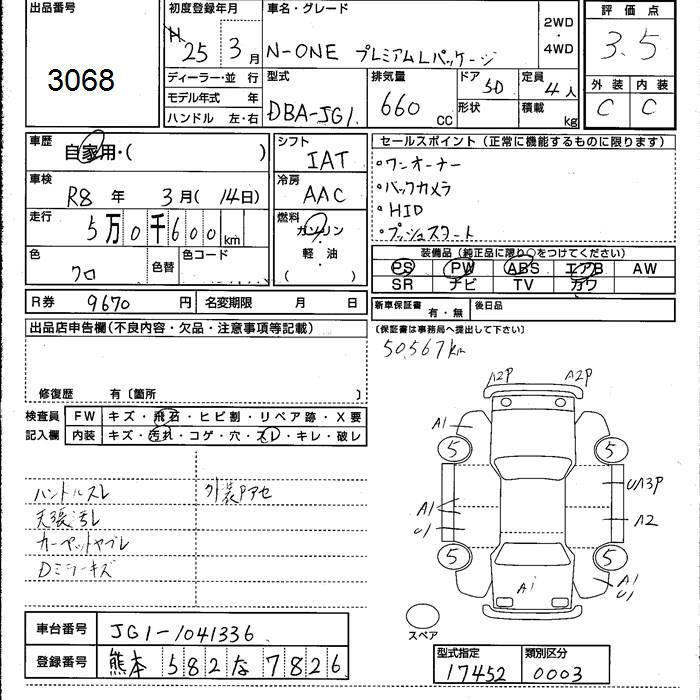 出品番号
3068
初度登録年月
H 25 3 月
車名・グレード
N-ONE プレミアムLパッケージ
2WD
・
4WD
評価点
3.5
外装 内装
C C
ディーラー・並 行
モデル年式 年
ハンドル 左・右
型式
DBA-JG1
排気量
660 cc
ドア
5D
形状
定員
4人
積載
kg
車歴
自家用・( )
車検
R8 年 3月( 14日)
走行
5万0千600 km
色
クロ
色替
色コード
シフト
IAT
冷房
AAC
燃料
ガソリン
軽・油
( )
セールスポイント(正常に機能するものに限ります)
・ワンオーナー
・バックカメラ
・HID
・プッシュスタート
装備品(純正品に限り○をつけてください)
PS PW ABS エアB AW
SR ナビ TV カワ
R券 9670 円 名変期限 月 日
新車保証書
有・無
後日品
(保証書は事務局へ提出して下さい)
50567km
出品店申告欄(不良内容・欠品・注意事項等記載)
修復歴 有〔箇所 〕
検査員
記入欄
FW キズ・飛石・ヒビ割・リペア跡・X要
内装 キズ・汚れ・コゲ・穴・スレ・キレ・破レ
ハンドルスレ
天張汚レ
カーペットヤブレ
Dミラーキズ
外装Pアセ
A2P A2P
A1
5 5
UA3P
A1
U1
A2
5 5
A1
A1
U1
スペア
車台番号 JG1-1041336
登録番号 熊本 582 な 7826
型式指定 類別区分
17452 0003